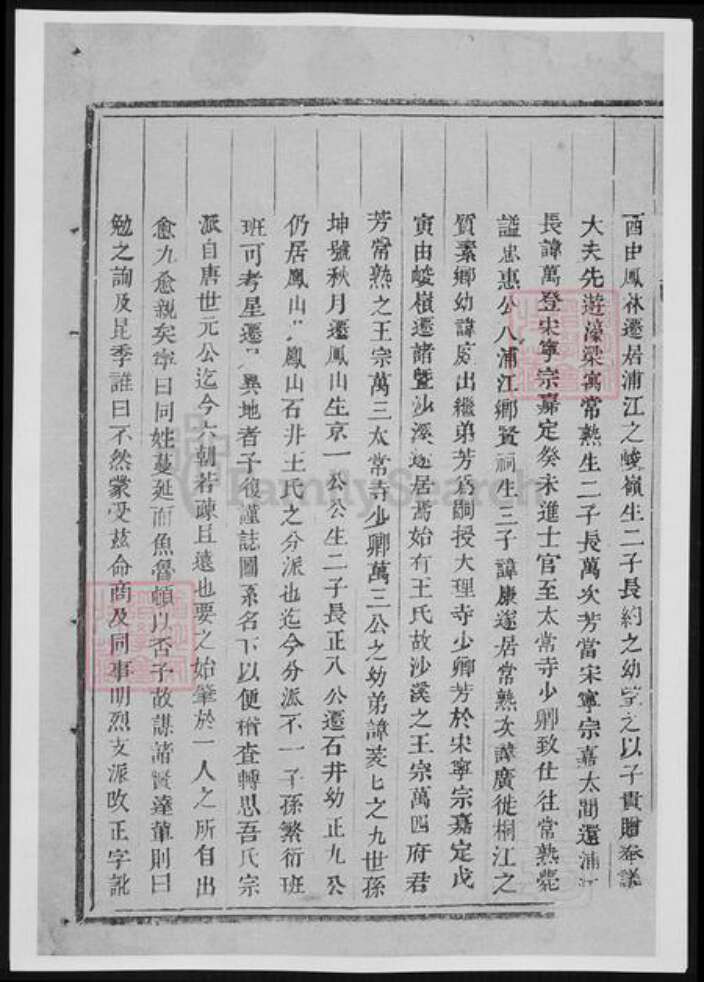 酉由鳳林遷居浦江之峻嶺生二子長約之幼望之以子貴贈奉議
大夫先遊濠梁寓常熟生二子長萬次芳當宋寧宗嘉太間還浦江
長諱萬登宋寧宗嘉定癸未進士官至太常寺少卿致仕往常熟薨
謚忠惠公入浦江鄉賢祠生三子諱康遂居常熟次諱廣徙桐江之
質素鄉幼諱房出繼弟芳為嗣授大理寺少卿芳於宋寧宗嘉定戊
寅由峻嶺遷諸暨沙溪遂居焉始有王氏故沙溪之王宗萬四府君
芳常熟之王宗萬三太常寺少卿萬三公之幼弟諱菱七之九世孫
坤號秋月遷鳳山生京一公公生二子長正八公遷石井幼正九公
仍居鳳山鳳山石井王氏之分派也迄今分派不一子孫繁衍班
班可考星遷異地者予復謹誌圖系名下以便稽查轉思吾氏宗
派自唐世元公迄今六朝若疎且遠也要之始肇於一人之所自出
愈九愈親矣寧曰同姓蔓延而魚魯頓以否予故謀諸賢達輩則曰
勉之詢及昆季誰曰不然蒙受茲命商及同事明烈支派改正字訛
FamilySearch